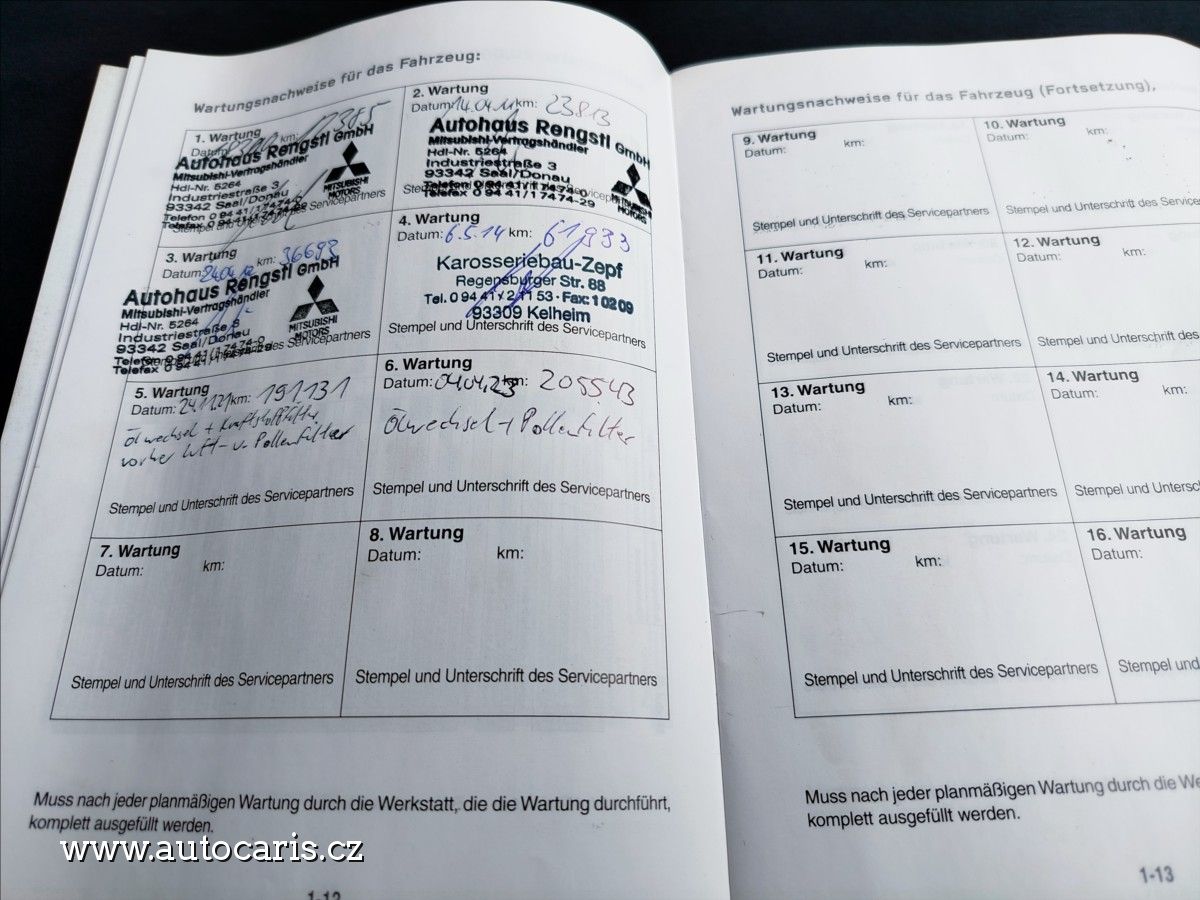 Wartungsnachweise für das Fahrzeug:
1. Wartung
Datum: km:
Autohaus Rengstl GmbH
Mitsubishi-Vertragshändler
Hdl-Nr. 5264
Industriestraße 3
93342 Saal/Donau
Telefon 0 94 41/1 74 74-0
Telefax 0 94 41/1 74 74-29
MITSUBISHI
MOTORS
Stempel und Unterschrift des Servicepartners
2. Wartung
Datum: 14.04.11 km: 23813
Autohaus Rengstl GmbH
Mitsubishi-Vertragshändler
Hdl-Nr. 5264
Industriestraße 3
93342 Saal/Donau
Telefon 0 94 41/1 74 74-0
Telefax 0 94 41/1 74 74-29
MITSUBISHI
MOTORS
3. Wartung
Datum: 24.04.12 km: 36693
Autohaus Rengstl GmbH
Mitsubishi-Vertragshändler
Hdl-Nr. 5264
Industriestraße 3
93342 Saal/Donau
Telefon 0 94 41/1 74 74-0
Telefax 0 94 41/1 74 74-29
MITSUBISHI
MOTORS
Stempel und Unterschrift des Servicepartners
4. Wartung
Datum: 6.5.14 km: 61933
Karosseriebau-Zepf
Regensburger Str. 88
Tel. 0 94 41 / 2 11 53 · Fax: 1 02 09
93309 Kelheim
Stempel und Unterschrift des Servicepartners
5. Wartung
Datum: 24.11.21 km: 191131
Ölwechsel + Kraftstofffilter
vorher Luft- u. Pollenfilter
Stempel und Unterschrift des Servicepartners
6. Wartung
Datum: 04.04.23 km: 205543
Ölwechsel + Pollenfilter
Stempel und Unterschrift des Servicepartners
7. Wartung
Datum: km:
Stempel und Unterschrift des Servicepartners
8. Wartung
Datum: km:
Stempel und Unterschrift des Servicepartners
Muss nach jeder planmäßigen Wartung durch die Werkstatt, die die Wartung durchführt,
komplett ausgefüllt werden.
1-12
Wartungsnachweise für das Fahrzeug (Fortsetzung),
9. Wartung
Datum: km:
Stempel und Unterschrift des Servicepartners
10. Wartung
Datum: km:
Stempel und Unterschrift des Service
11. Wartung
Datum: km:
Stempel und Unterschrift des Servicepartners
12. Wartung
Datum: km:
Stempel und Unterschrift des Serv
13. Wartung
Datum: km:
Stempel und Unterschrift des Servicepartners
14. Wartung
Datum: km:
Stempel und Unterschrift des Serv
15. Wartung
Datum: km:
Stempel und Unterschrift des Servicepartners
16. Wartung
Datum:
Stempel und
Muss nach jeder planmäßigen Wartung durch die We
komplett ausgefüllt werden.
1-13
www.autocaris.cz